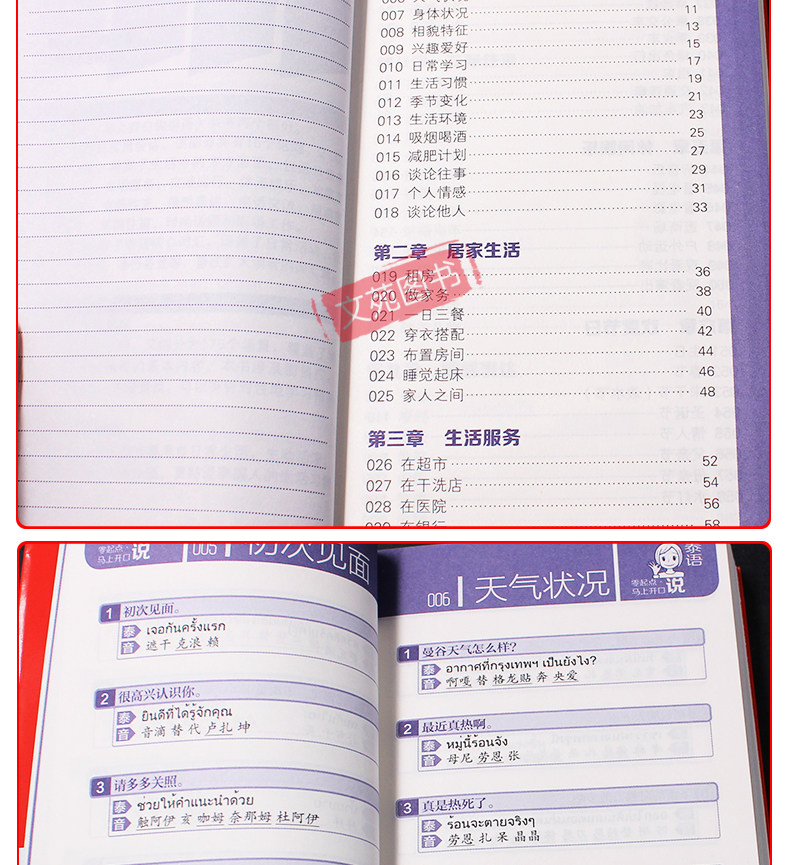 007 身体状况 11
008 相貌特征 13
009 兴趣爱好 15
010 日常学习 17
011 生活习惯 19
012 季节变化 21
013 生活环境 23
014 吸烟喝酒 25
015 减肥计划 27
016 谈论往事 29
017 个人情感 31
018 谈论他人 33
第二章 居家生活
019 租房 36
020 做家务 38
021 一日三餐 40
022 穿衣搭配 42
023 布置房间 44
024 睡觉起床 46
025 家人之间 48
文苑图书
第三章 生活服务
026 在超市 52
027 在干洗店 54
028 在医院 56
029 在银行 58
零起点·
马上开口 说
005 初次见面
1 初次见面。
泰 เจอกันครั้งแรก
音 遮干 克浪 赖
2 很高兴认识你。
泰 ยินดีที่ได้รู้จักคุณ
音 音滴 替 代 卢扎 坤
3 请多多关照。
泰 ช่วยให้คำแนะนำด้วย
音 触阿伊 亥 咖姆 奈那姆 杜阿伊
006 天气状况
泰语
零起点·
马上开口 说
1 曼谷天气怎么样?
泰 อากาศที่กรุงเทพฯ เป็นยังไง?
音 啊嘎 替 格龙贴 奔 央爱
2 最近真热啊。
泰 หมู่นี้ร้อนจัง
音 母尼 劳恩 张
3 真是热死了。
泰 ร้อนจะตายจริงๆ
音 劳恩 扎 呆 晶晶